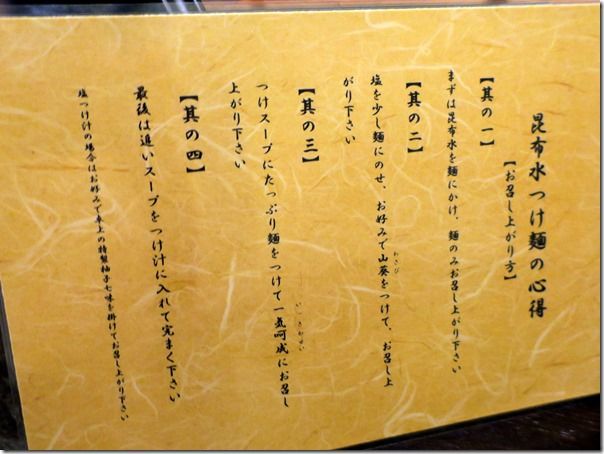 昆布水つけ麺の心得
【お召し上がり方】
【其の一】
まずは昆布水を麺にかけ、麺のみお召し上がり下さい
【其の二】
塩を少し麺にのせ、お好みで山葵をつけて、お召し上
わさび
がり下さい
【其の三】
つけスープにたっぷり麺をつけて一気呵成にお召し
いっきかせい
上がり下さい
【其の四】
最後は追いスープをつけ汁に入れて完まく下さい
塩つけ汁の場合はお好みで卓上の特製柚子七味を掛けてお召し上がり下さい